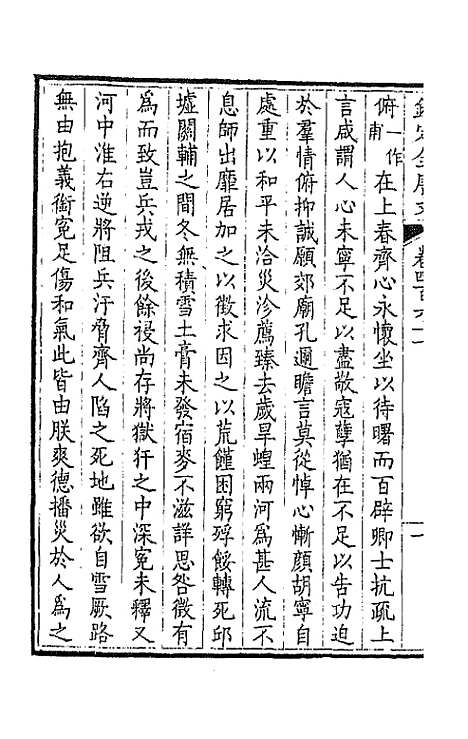 欽定全唐文 卷四百六十一 一
俯一作甫在上春齊心永懷坐以待曙而百辟卿士抗疏上
言咸謂人心未寧不足以盡敬寇孽猶在不足以告功迫
於羣情俯抑誠願郊廟孔邇瞻言莫從悼心慚顏胡寧自
處重以和平未洽災沴薦臻去歲旱蝗兩河爲甚人流不
息師出靡居加之以徵求因之以荒饉困窮殍餒轉死邱
墟關輔之間冬無積雪土膏未發宿麥不滋詳思咎徵有
爲而致豈兵戎之後餘祲尚存將獄犴之中深冤未釋又
河中淮右逆將阻兵汙脅齊人陷之死地雖欲自雪厥路
無由抱義銜冤足傷和氣此皆由朕爽德播災於人爲之